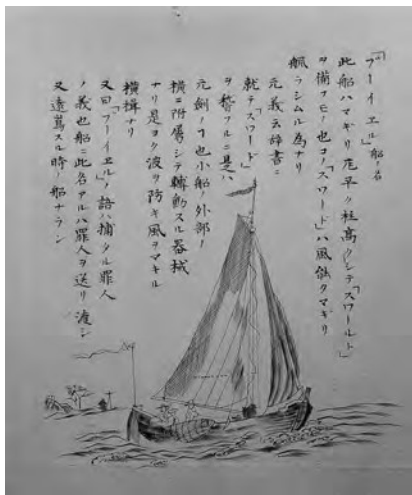 「ブーイエル」船名
此船ハマギリ虎早ク柱高クシテ「スワールト」
ヲ備フモノ也コノ「スワード」ハ風傾タマギリ
颿ラシムル為ナリ
元義云辞書ニ
就テ「スワード」
ヲ稽フルニ是ハ
元劍ノヿ也小船ノ外部ノ
横ニ附属シテ轉動スル器械
ナリ是ヨク波ヲ防ギ風ヲマキル
横楫ナリ
又曰「ブーイエル」ノ語ハ捕タル罪人
ノ義也船ニ此名アルハ罪人ヲ送リ渡シ
又遠嶌スル時ノ船ナラン